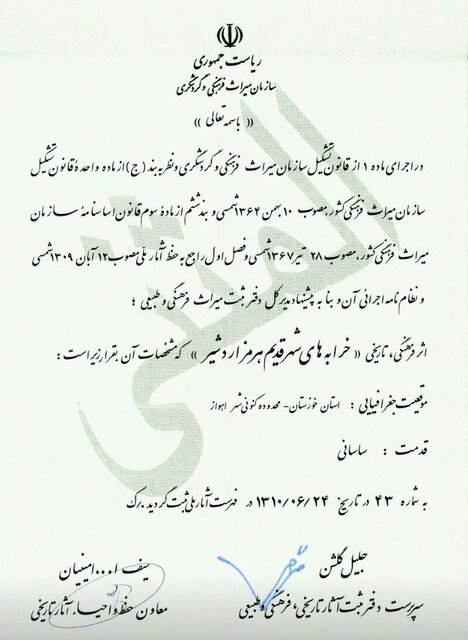 ریاست جمهوری
سازمان میراث فرهنگی و گردشگری
« باسمه تعالی »
در اجرای ماده ۱ از قانون تشکیل سازمان میراث فرهنگی و گردشگری و نظر به بند ( ج ) از ماده واحدهٔ قانون تشکیل
سازمان میراث فرهنگی کشور، مصوب ۱۰ بهمن ۱۳۶۴ شمسی و بند ششم از مادهٔ سوم قانون اساسنامهٔ سازمان
میراث فرهنگی کشور، مصوب ۲۸ تیر ۱۳۶۷ شمسی و فصل اول راجع به حفظ آثار ملی مصوب ۱۲ آبان ۱۳۰۹ شمسی
و نظام نامه اجرائی آن و بنا به پیشنهاد مدیر کل دفتر ثبت میراث فرهنگی و طبیعی ؛
اثر فرهنگی، تاریخی « خرابه های شهر قدیم هرمز اردشیر » که مشخصات آن بقرار زیر است :
موقعیت جغرافیایی : استان خوزستان- محدوده کنونی شهر اهواز
قدمت : ساسانی
به شماره ۴۳ در تاریخ ۱۳۱۰/۰۶/۲۴ در فهرست آثار ملی ثبت گردید.
جلیل گلشن
سرپرست دفتر ثبت آثار تاریخی، فرهنگی و طبیعی
سیف ا... امینیان
معاون حفظ و احیاء آثار تاریخی